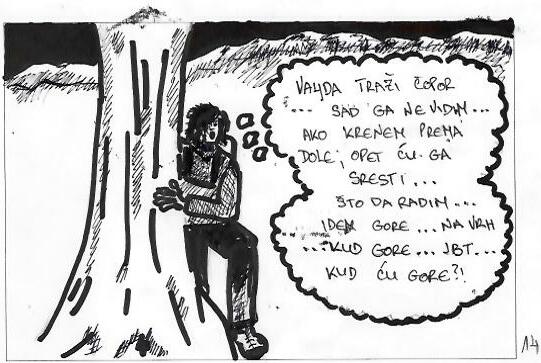 VALJDA TRAŽI ČOPOR
... SAD GA NE VIDIM...
AKO KRENEM PREMA
DOLE, OPET ĆU GA
SRESTI...
ŠTO DA RADIM...
IDEM GORE... NA VRH
...KUD GORE... JBT...
KUD ĆU GORE?!
14